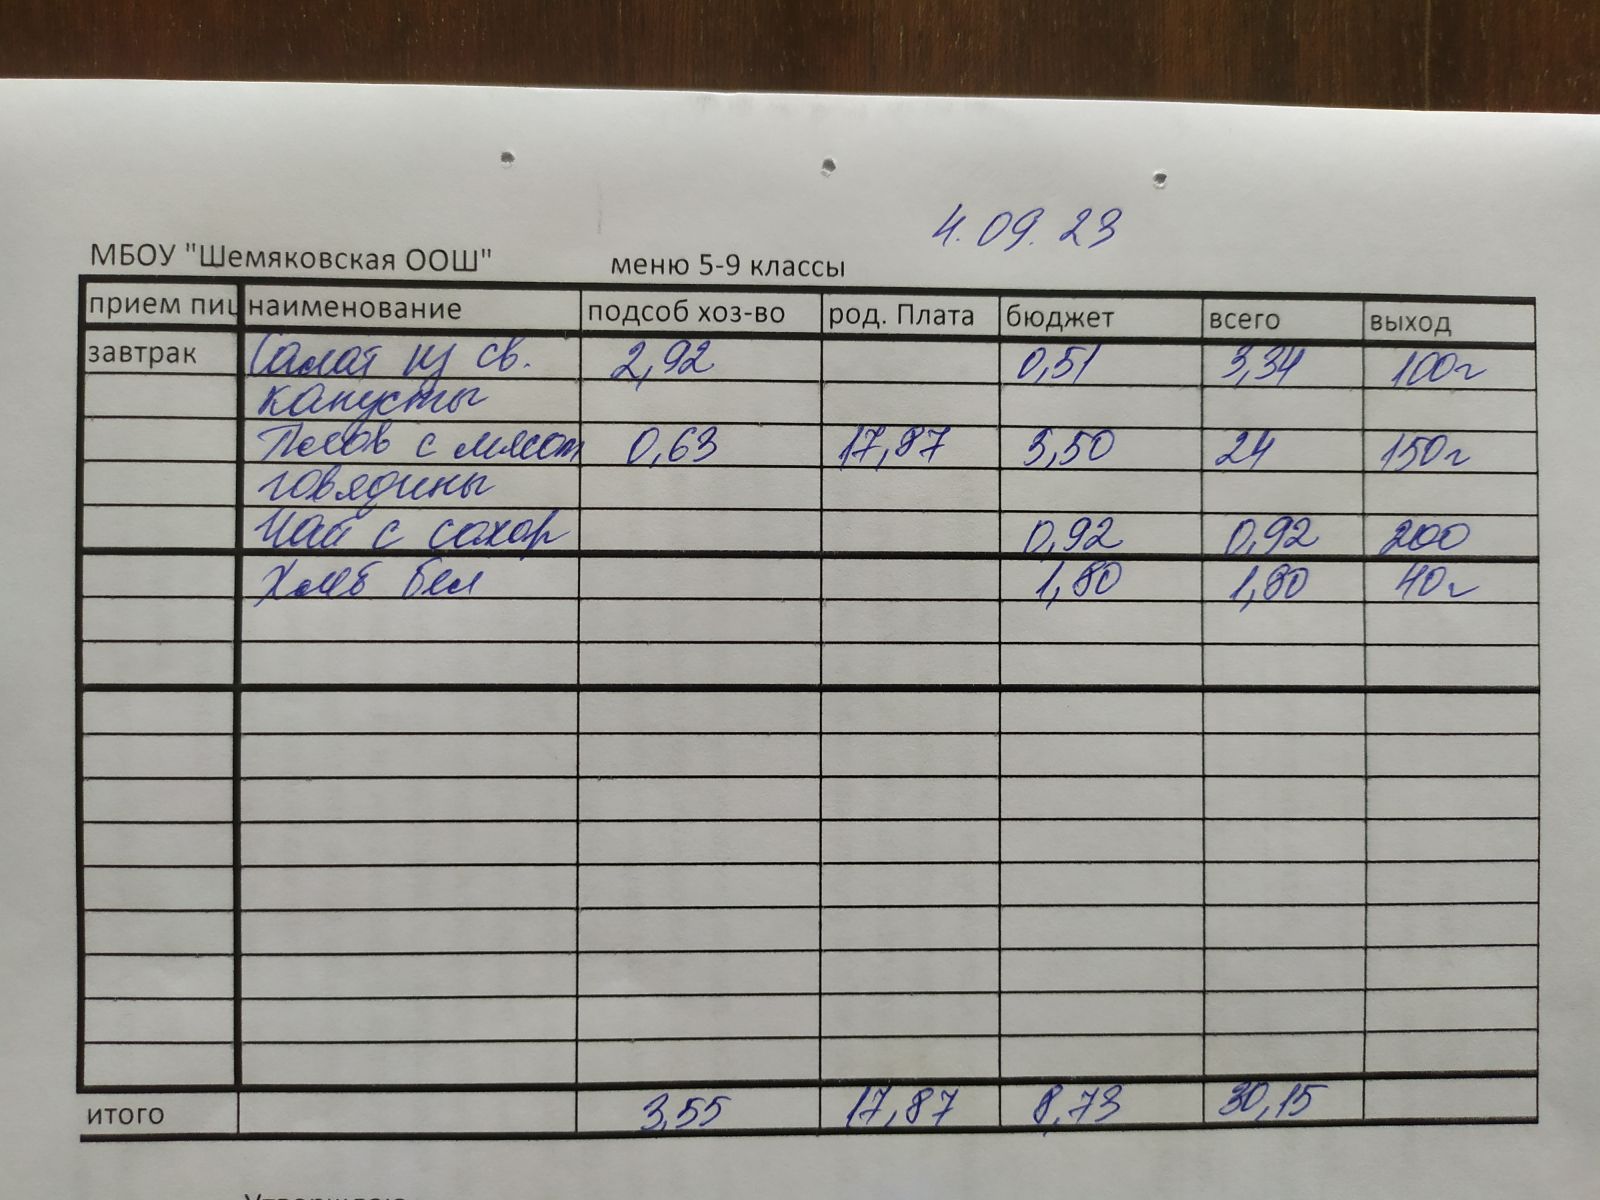 4.09.23
МБОУ "Шемяковская ООШ" меню 5-9 классы
прием пищ наименование подсоб хоз-во род. Плата бюджет всего выход
завтрак Салат из св. 2,92 0,51 3,34 100г
капусты
Плов с мясом 0,63 17,87 5,50 24 150г
говядины
Чай с сахар 0,92 0,92 200
Хлеб бел 1,80 1,80 40г
итого 3,55 17,87 8,73 30,15